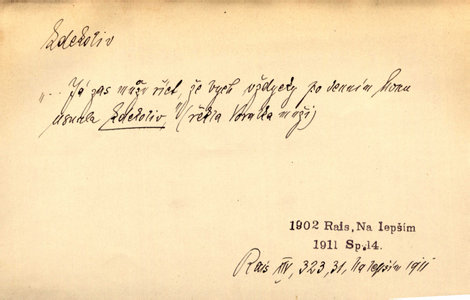 Zdekoliv
„... Já zas můžu říct, že bych vždycky po denním honu
usnula kdekoliv, (řekla muži)
1902 Rais, Na lepším
1911 Sp.14.
Rais XIV, 323, 31, Na lepším 1911